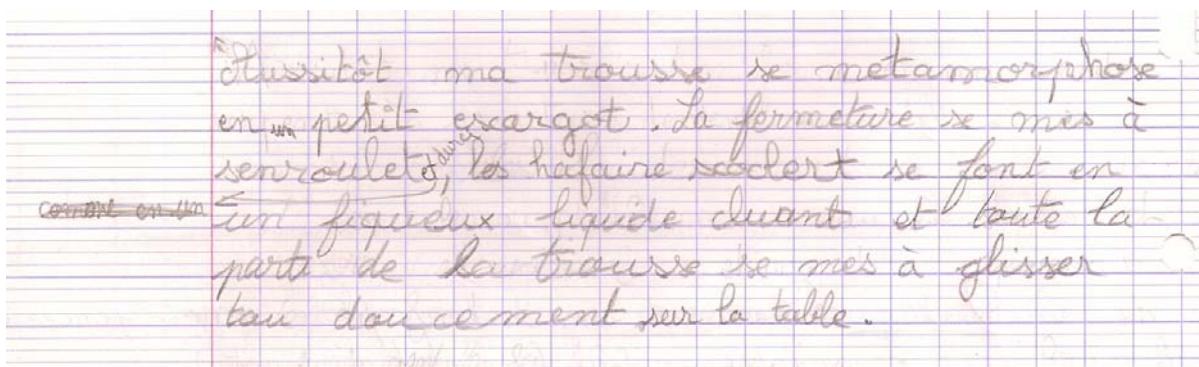 Aussitôt ma trousse se métamorphose
en un petit escargot. La fermeture se mes à
senroulet et durci, les hafaire scolert se font en
comme en un
un fiqueux liquide cluant et toute la
parti de la trousse se mes à glisser
tau doucement sur la table.